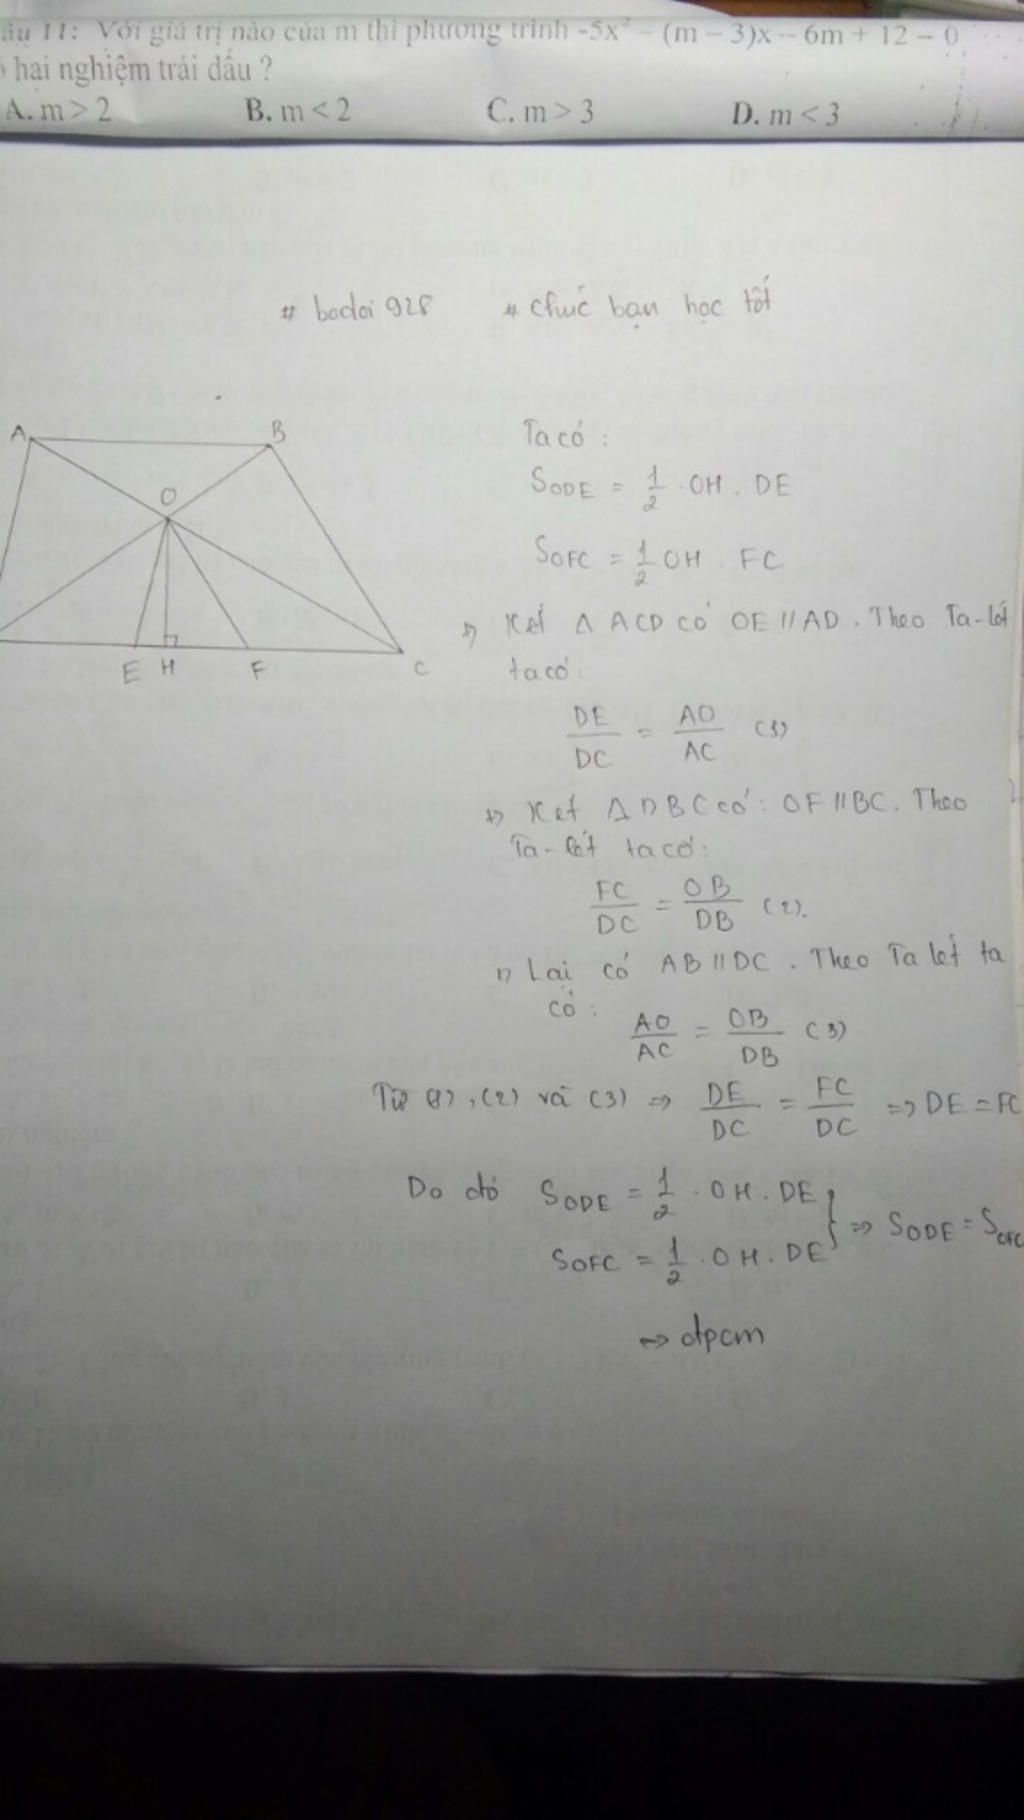 âu 11: Với giá trị nào của m thì phương trình -5x² - (m - 3)x - 6m + 12 = 0
ó hai nghiệm trái dấu ?
A. m > 2 B. m < 2 C. m > 3 D. m < 3
# bodoi 928 # chúc bạn học tốt
A B
O
E H F C
Ta có :
SODE = 1/2 . OH . DE
SOFC = 1/2 OH . FC
+) Xét Δ ACD có OE // AD . Theo Ta-lét
ta có :
DE/DC = AO/AC (1)
+) Xét Δ DBC có : OF // BC . Theo
Ta-lét ta có :
FC/DC = OB/DB (2).
+) Lại có AB // DC . Theo Ta lét ta
có :
AO/AC = OB/DB (3)
Từ (1), (2) và (3) => DE/DC = FC/DC => DE = FC
Do đó SODE = 1/2 . OH . DE
SOFC = 1/2 . OH . DE } => SODE = SOFC
=> đpcm